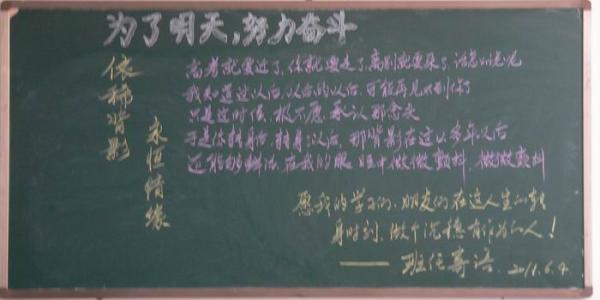 为了明天，努力奋斗
依稀背影
永恒情缘
高考就要过了，你就要走了，离别就要来了，话怎么说呢
我知道过以后，以后的以后，可能再见不到你了
只是这时候，极不愿承认那念头
于是你转身后，转身以后，那背影在这么多年以后
还能够鲜活，在我的眼眶中微微颤抖，微微颤抖
愿我的学子们、朋友们在这人生的转
身时刻，做个沉稳有作为的人！
——班任寄语 2011.6.4